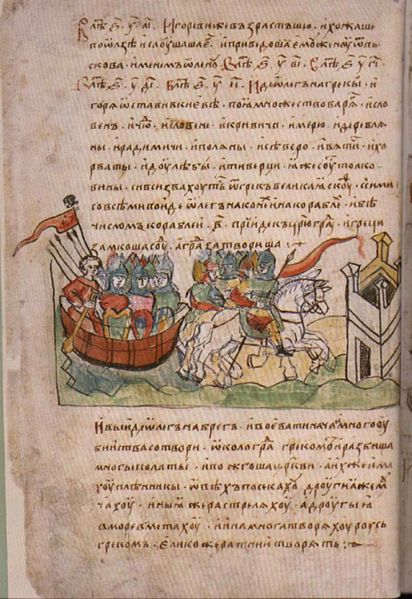 В лѣⷮ ҂ѕ҃ у҃ аі҃ · Игореви же възрастъшю · и хожаше
по ѡлзѣ и слоушаша е҃ · и приведоша емоу женоу ѿ пь
скова · именемъ ѡленоу · В лѣⷮ ҂ѕ҃ у҃ ві҃ · В лѣⷮ ҂ѕ҃ у҃ гі҃
В лѣⷮ ҂ѕ҃ у҃ ді҃ · В лѣⷮ ҂ѕ҃ у҃ еі҃ · Иде ѡлегъ на грекы · и
горя ѡстави в киевѣ · поя множество варя · и сло
венъ · и чю · и словене · и кривичи · и мерю · и деревля
ны · и радимичи · и поляны · и сѣверо · и вятичи · и хъ
рваты · и доулѣбы · и тиверци · иже соу толко
вины · си вси звахоуть ѿ грекъ великаа скоуѳ · с ими
со всѣми поиде ѡлегъ на коне и на корабле · и бѣ
числомъ кораблеи · в҃ · прїиде къ цр҃югра · и греци
замкоша соу · а гра затвориша
И выиде ѡлегъ на брегъ · и воевати нача · и много оу
бииства сотвори · ѡколо гра греком · и разбиша
многы полаты · и пожгоша церкви · а их же има
хоу плѣнникы · ѡвѣхъ посѣкахоу · дроугиа же м
чахоу · иныа же растреляхоу · а дроугыя
в море вметахоу · и ина многа творяхоу роусь
грекомъ · елико же ратнии творять